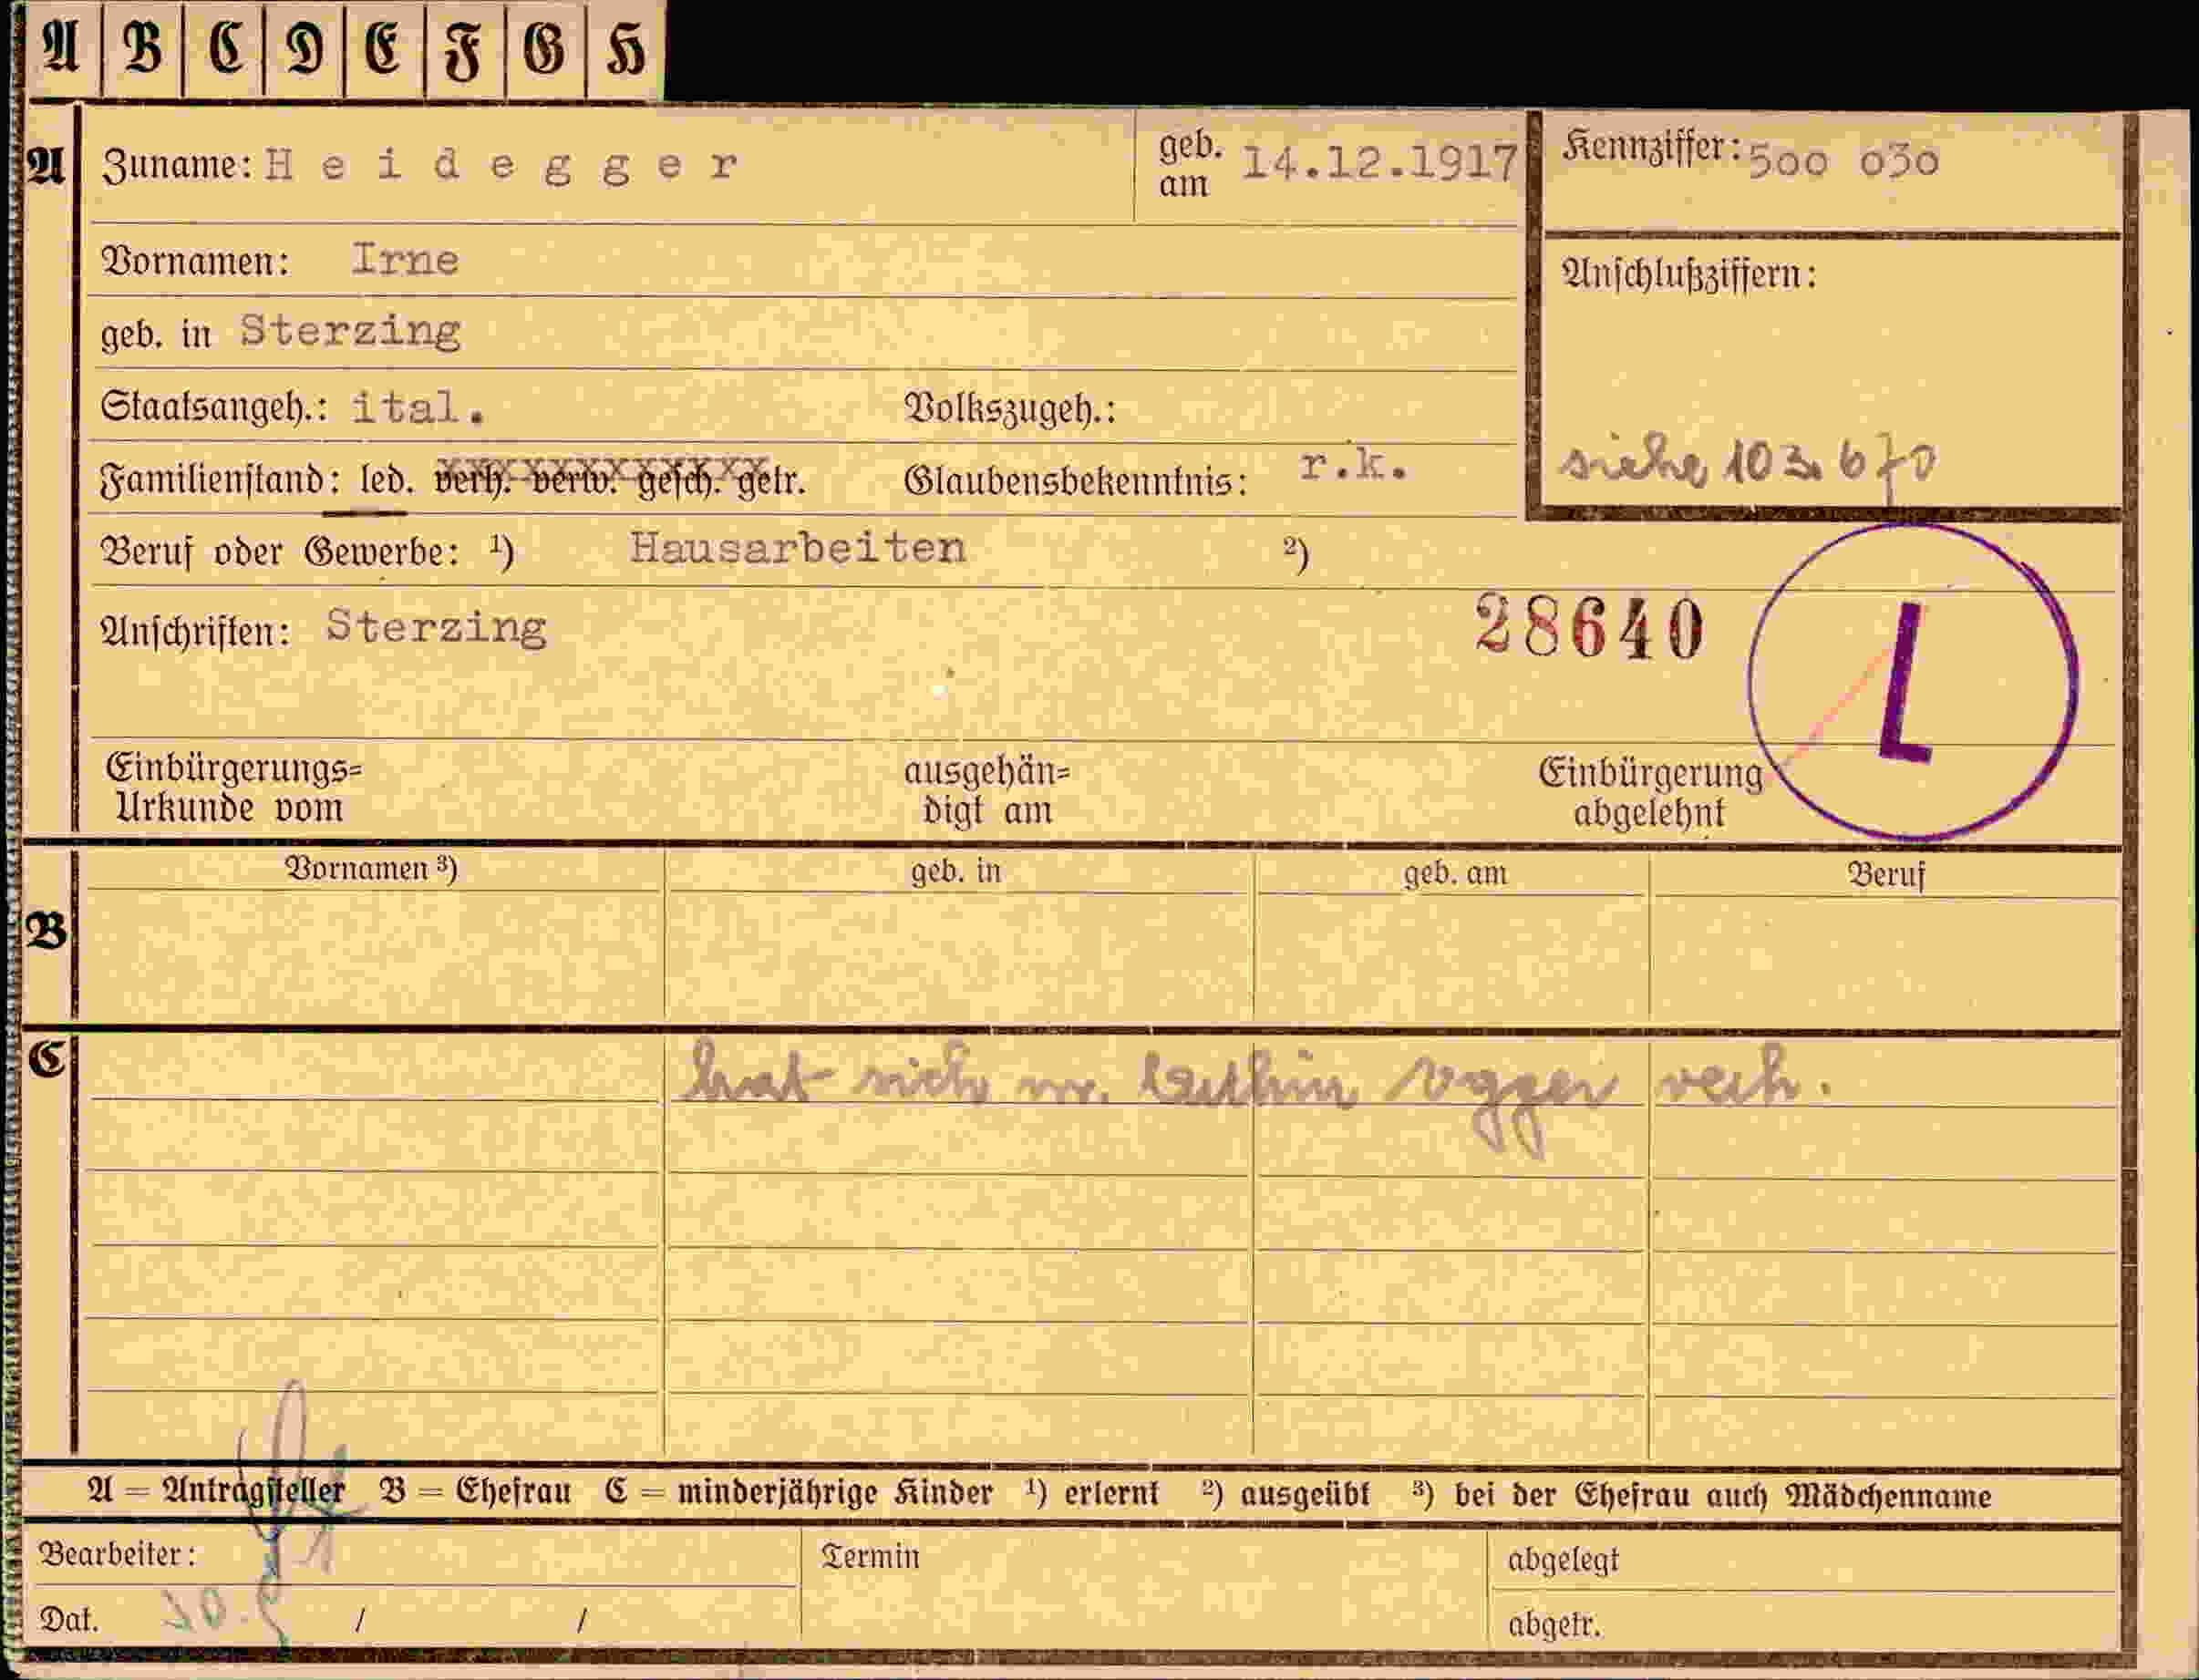 A B C D E F G H
A Zuname: Heidegger geb. am 14.12.1917 Kennziffer: 500 030
Vornamen: Irne
Anschlußziffern:
geb. in Sterzing
Staatsangeh.: ital. Volkszugeh.:
siehe 103.670
Familienstand: led. verh. verw. gesch. getr. Glaubensbekenntnis: r.k.
Beruf oder Gewerbe: ¹) Hausarbeiten ²)
Anschriften: Sterzing 28640 L
Einbürgerungs= ausgehän= Einbürgerung
Urkunde vom digt am abgelehnt
Vornamen ³) geb. in geb. am Beruf
B
C hat sich m. Egger verh.
A = Antragsteller B = Ehefrau C = minderjährige Kinder ¹) erlernt ²) ausgeübt ³) bei der Ehefrau auch Mädchenname
Bearbeiter: Termin abgelegt
Dat. / / abgetr.